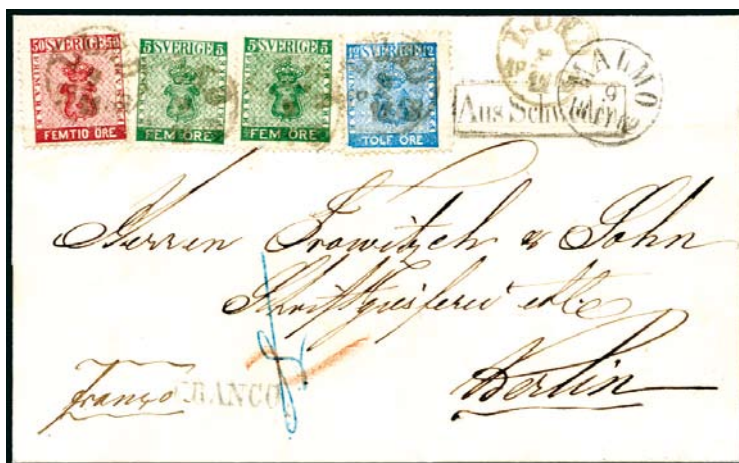 50 SVERIGE 50
FEMTIO ÖRE
5 SVERIGE 5
FEM ÖRE
5 SVERIGE 5
FEM ÖRE
12 SVERIGE 12
TOLF ÖRE
MALMÖ
9
Aus Schweden
Herren Trowitzsch & Sohn
Schriftgiesserei etc
Berlin
franco
FRANCO